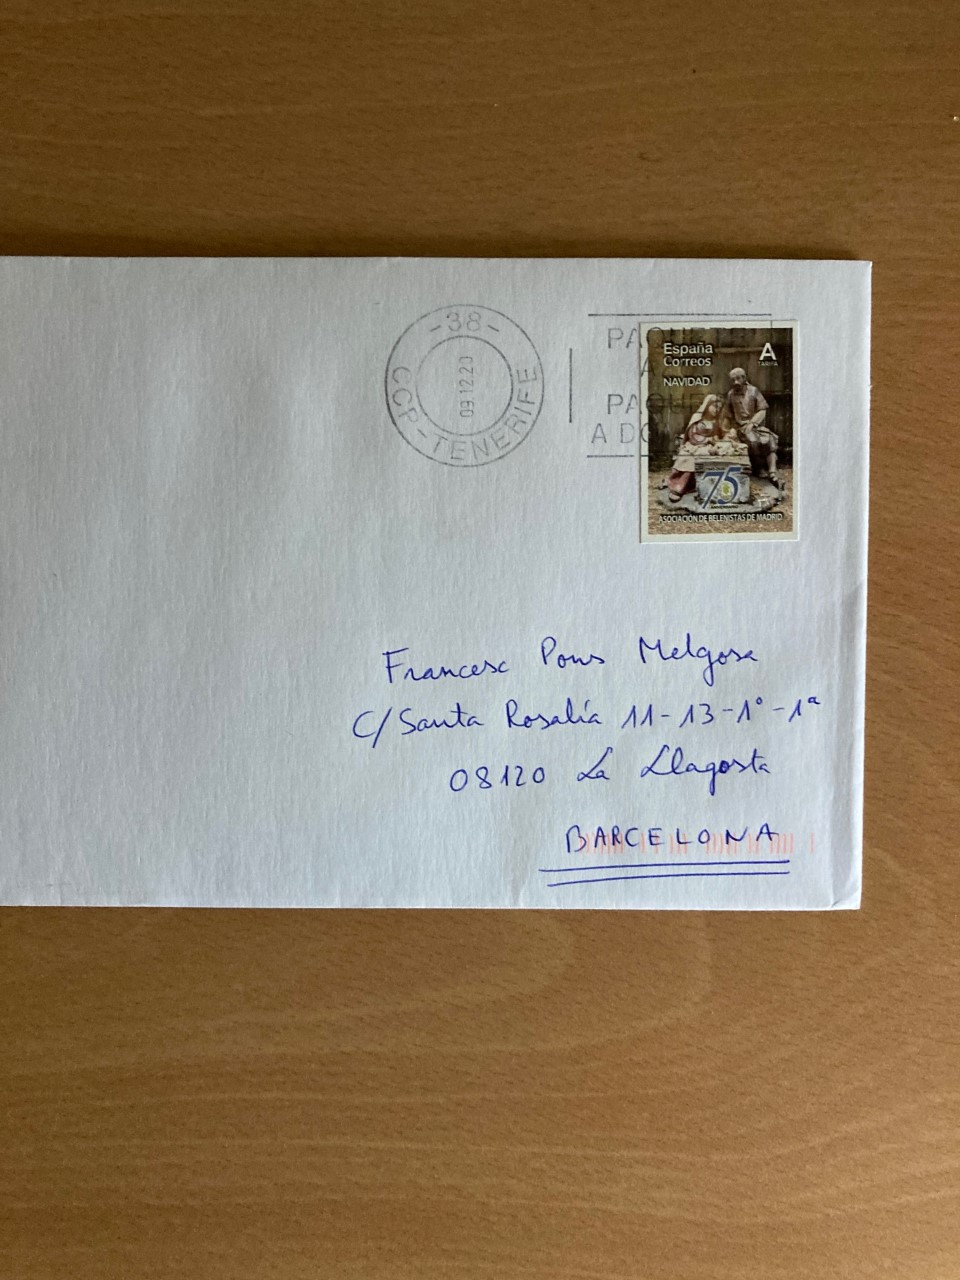 -38-
CCP-TENERIFE
09.12.20
España
Correos
A
TARIFA
NAVIDAD
75
ASOCIACIÓN DE BELENISTAS DE MADRID
A
Francesc Pons Melgosa
C/Santa Rosalía 11-13-1º-1ª
08120 La Llagosta
BARCELONA